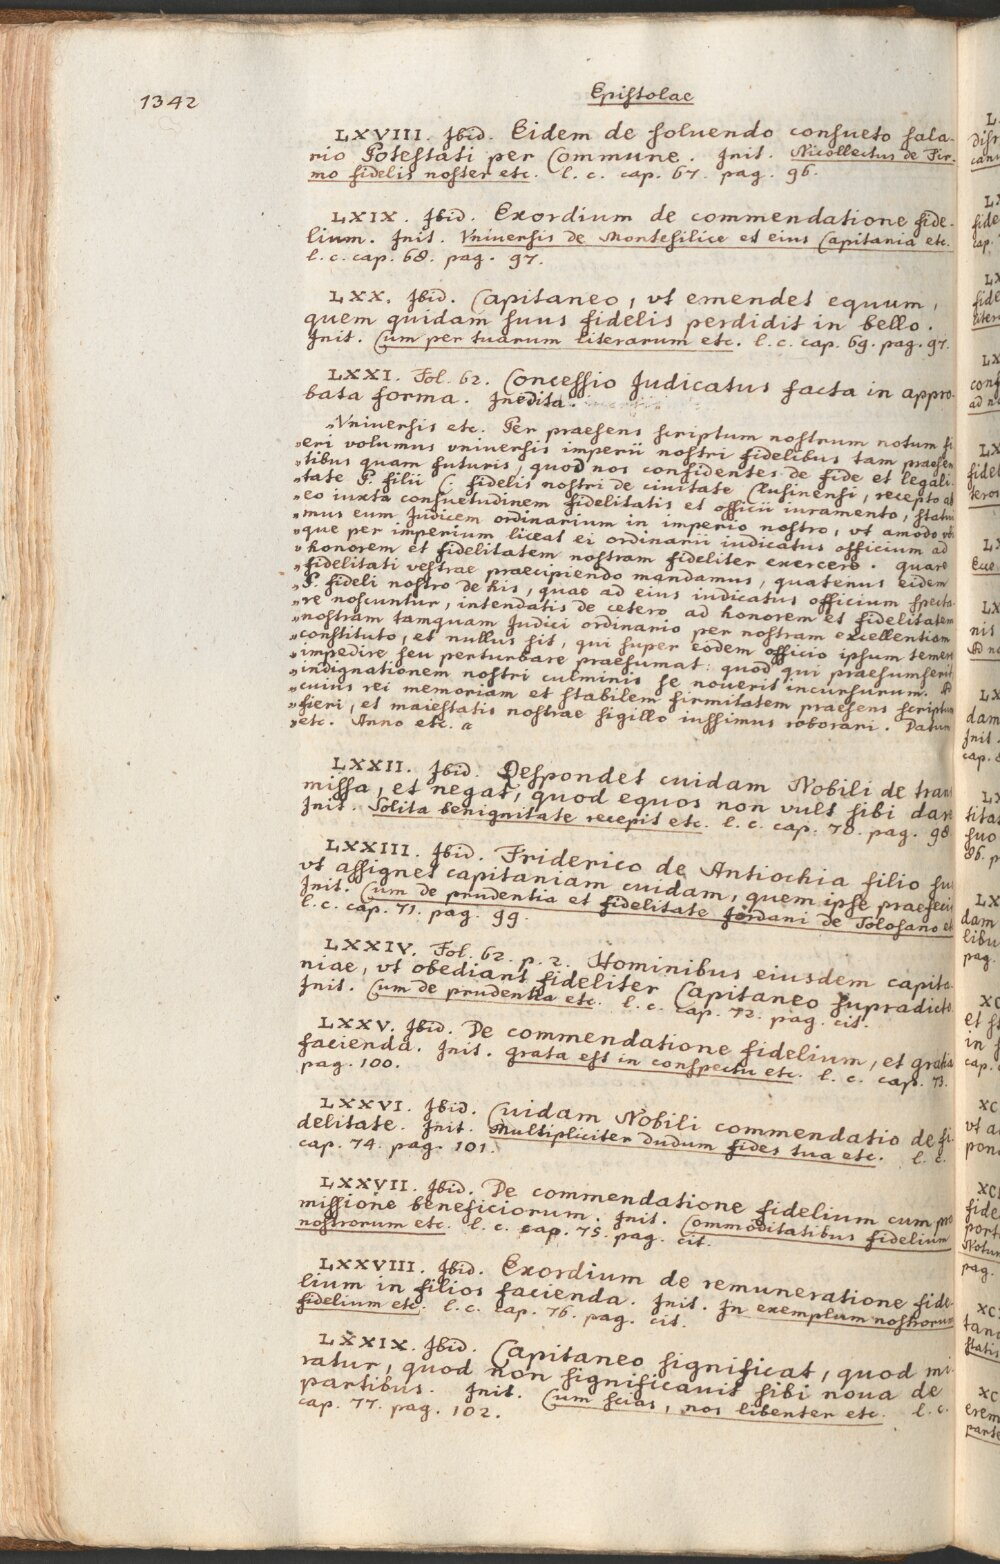 1342
Epistolae
LXVIII. Ibid. Eidem de soluendo consueto sala-
rio Potestati per Commune. Init. Nicollectus de Fir-
mo fidelis noster etc. l. c. cap. 67. pag. 96.
LXIX. Ibid. Exordium de commendatione fide-
lium. Init. Vniuersis de Montesilice et eius Capitania etc.
l. c. cap. 68. pag. 97.
LXX. Ibid. Capitaneo, vt emendet equum,
quem quidam suus fidelis perdidit in bello.
Init. Cum per tuarum literarum etc. l. c. cap. 69. pag. 97.
LXXI. Fol. 62. Concessio Iudicatus facta in appro-
bata forma. Inedita.
„Vniuersis etc. Per praesens scriptum nostrum notum fi
„eri volumus vniuersis imperii nostri fidelibus tam praesen
„tibus quam futuris, quod nos confidentes de fide et legali-
„tate P. filii C. fidelis nostri de ciuitate Clusinensi, recepto ab
„eo iuxta consuetudinem fidelitatis et officii iuramento, statui
„mus eum Iudicem ordinarium in imperio nostro, vt amodo vbi
„que per imperium liceat ei ordinarii iudicatus officium ad
„honorem et fidelitatem nostram fideliter exercere. quare
„fidelitati vestrae praecipiendo mandamus, quatenus eidem
„P. fideli nostro de his, quae ad eius iudicatus officium specta-
„re noscuntur, intendatis de cetero ad honorem et fidelitatem
„nostram tamquam Iudici ordinario per nostram excellentiam
„constituto, et nullus sit, qui super eodem officio ipsum temere
„impedire seu perturbare praesumat: quod qui praesumserit,
„indignationem nostri culminis se nouerit incursurum. Ad
„cuius rei memoriam et stabilem firmitatem praesens scriptum
„fieri, et maiestatis nostrae sigillo iussimus roborari. Datum
„etc. Anno etc. a
LXXII. Ibid. Respondet cuidam Nobili de trans
missa, et negat, quod equos non vult sibi dare
Init. Solita benignitate recepit etc. l. c. cap. 70. pag. 98.
LXXIII. Ibid. Friderico de Antiochia filio suo
vt assignet capitaniam cuidam, quem ipse praefecit
Init. Cum de prudentia et fidelitate Iordani de Tolosano et
l. c. cap. 71. pag. 99.
LXXIV. Fol. 62. p. 2. Hominibus eiusdem capita-
niae, vt obediant fideliter Capitaneo supradicto.
Init. Cum de prudentia etc. l. c. cap. 72. pag. cit.
LXXV. Ibid. De commendatione fidelium, et gratia
facienda. Init. Grata est in conspectu etc. l. c. cap. 73.
pag. 100.
LXXVI. Ibid. Cuidam Nobili commendatio de fi-
delitate. Init. Multipliciter dudum fides tua etc. l. c.
cap. 74. pag. 101.
LXXVII. Ibid. De commendatione fidelium cum pro
missione beneficiorum. Init. Commoditatibus fidelium
nostrorum etc. l. c. cap. 75. pag. cit.
LXXVIII. Ibid. Exordium de remuneratione fide-
lium in filios facienda. Init. In exemplum nostrorum
fidelium etc. l. c. cap. 76. pag. cit.
LXXIX. Ibid. Capitaneo significat, quod mi-
ratur, quod non significauit sibi noua de
partibus. Init. Cum scias, nos libenter etc. l. c.
cap. 77. pag. 102.